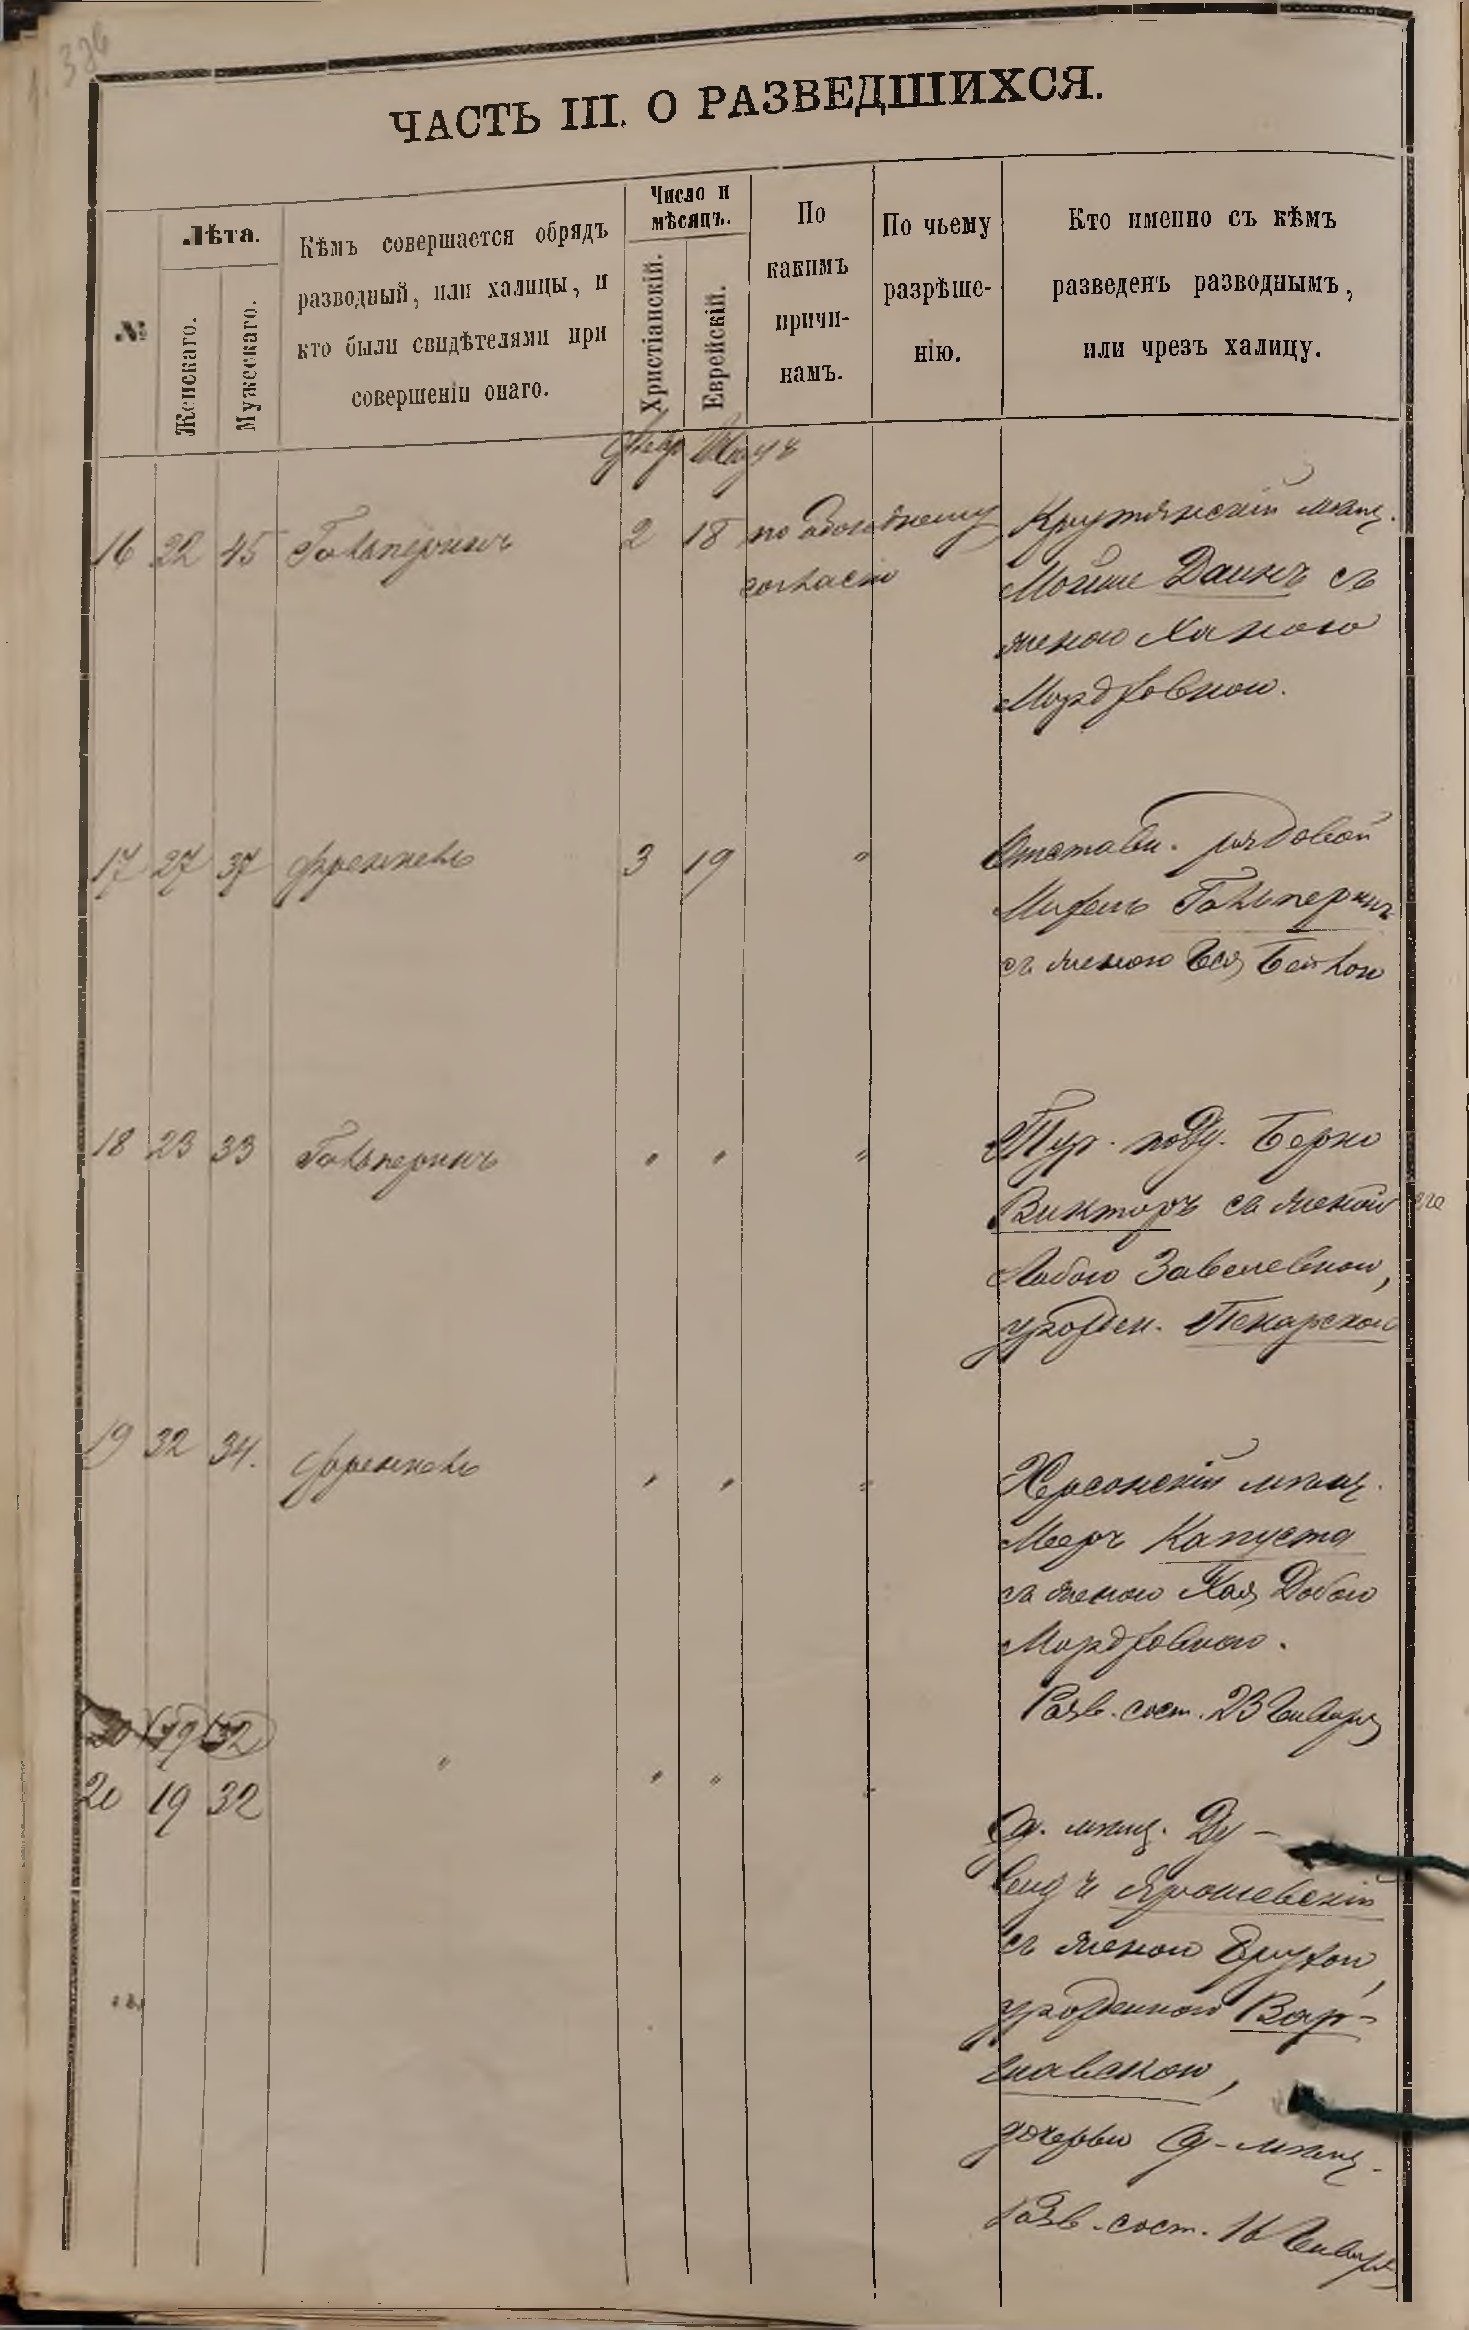 326
ЧАСТЬ III. О РАЗВЕДШИХСЯ.
№
Лѣта.
Женскаго.
Мужескаго.
Кѣмъ совершается обрядъ
разводный, или халицы, и
кто были свидѣтелями при
совершеніи онаго.
Число и
мѣсяцъ.
Христіанскій.
Еврейскій.
По
какимъ
причи-
намъ.
По чьему
разрѣше-
нію.
Кто именно съ кѣмъ
разведенъ разводнымъ,
или чрезъ халицу.
16 22 45 Гальперинъ 2 18 по обоюдному
согласію
Крутянскій мѣщ.
Мошше Даинъ съ
женою Ханою
Мордховною.
17 27 37 Френкель 3 19 "
Отставн. рядовой
Михель Гальперинъ
съ женою Бейлою
18 23 33 Гальперинъ " " "
Тур. подд. Берко
Викторъ съ женою
Любою Завелевною,
урожден. Пекарской
19 32 34. Френкель " " "
Херсонскій мѣщ.
Мееръ Капуста
съ женою Хая Добою
Мордховною.
Разв. сост. 23 Января
20 19 32
" " " "
20 19 32
О. мѣщ. Ду-
видъ Ярошевскій
съ женою Брухою,
урожденною Вар-
шавскою,
дочерью О. мѣщ.
Разв. сост. 16 Января